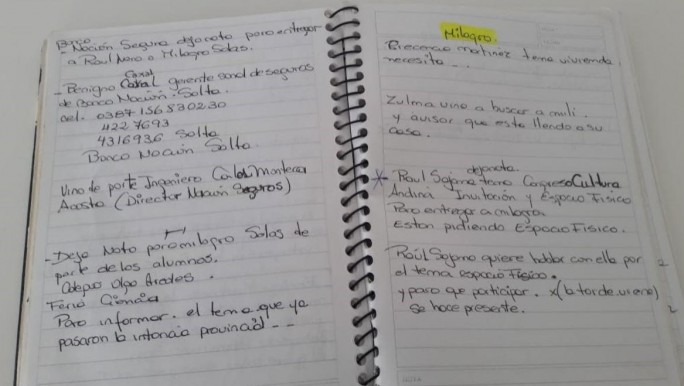 Banco
- Nación Seguro dejo nota para entregar
a Raul Noro o Milagro Salas.
Canal
- Benigno Canal gerente sand de seguros
de Banco Nación. Salta.
cel. 0387 156 830230
422 7693
4316936 Salta
Banco Nación Salta.
Vino de parte Ingeniero Carlos
Acosta (Director Nación Seguros)
- Dejo Nota para milagro Salas de
parte de los alumnos.
Colegio Olga
Feria Ciencia
Para informar. el tema que ya
pasaron la intancia provincial - -
Milagro.
martinez tema vivienda
necesita - - .
Zulma vino a buscar a muli.
y avisar que esta llendo a su
casa.
dejo nota.
* - Raul Sajama tema Congreso Cultura
Andina Invitación y Espacio Fisico
Para entregar a milagro.
Estan pidiendo Espacio Fisico.
Raúl Sajama quiere hablar con ella por
el tema espacio Fisico.
y para que participe. x(la tarde viene)
se hace presente.